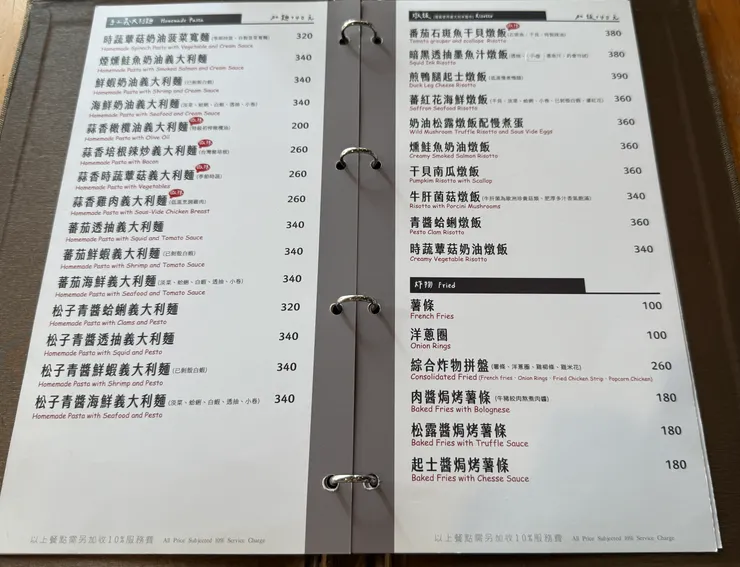 手工義大利麵 Homemade Pasta
時蔬蕈菇奶油菠菜寬麵 320
Homemade Spinach Pasta with Vegetable and Cream Sauce
煙燻鮭魚奶油義大利麵 340
Homemade Pasta with Smoked Salmon and Cream Sauce
鮮蝦奶油義大利麵 (已剝殼白蝦) 340
Homemade Pasta with Shrimp and Cream Sauce
海鮮奶油義大利麵 (淡菜、蛤蜊、白蝦、透抽、小卷) 340
Homemade Pasta with Seafood and Cream Sauce
蒜香橄欖油義大利麵 200
Homemade Pasta with Olive Oil
蒜香培根辣炒義大利麵 260
Homemade Pasta with Bacon
蒜香時蔬蕈菇義大利麵 260
Homemade Pasta with Vegetables
蒜香雞肉義大利麵 (低溫烹調雞肉) 260
Homemade Pasta with Sous-Vide Chicken Breast
蕃茄透抽義大利麵 340
Homemade Pasta with Squid and Tomato Sauce
蕃茄鮮蝦義大利麵 (已剝殼白蝦) 340
Homemade Pasta with Shrimp and Tomato Sauce
蕃茄海鮮義大利麵 (淡菜、蛤蜊、白蝦、透抽、小卷) 340
Homemade Pasta with Seafood and Tomato Sauce
松子青醬蛤蜊義大利麵 320
Homemade Pasta with Clams and Pesto
松子青醬透抽義大利麵 340
Homemade Pasta with Squid and Pesto
松子青醬鮮蝦義大利麵 (已剝殼白蝦) 340
Homemade Pasta with Shrimp and Pesto
松子青醬海鮮義大利麵 (淡菜、蛤蜊、白蝦、透抽、小卷) 340
Homemade Pasta with Seafood and Pesto
以上餐點需另加收10%服務費 All Price Subjected 10% Service Charge
燉飯 Risotto
番茄石斑魚干貝燉飯 380
Tomato grouper and scallope Risotto
暗黑透抽墨魚汁燉飯 380
Squid Ink Risotto
煎鴨腿起士燉飯 390
Duck Leg Cheese Risotto
蕃紅花海鮮燉飯 360
Saffron Seafood Risotto
奶油松露燉飯配慢煮蛋 360
Wild Mushroom Truffle Risotto and Sous Vide Eggs
燻鮭魚奶油燉飯 360
Creamy Smoked Salmon Risotto
干貝南瓜燉飯 360
Pumpkin Risotto with Scallop
牛肝菌菇燉飯 340
Risotto with Porcini Mushrooms
青醬蛤蜊燉飯 360
Pesto Clam Risotto
時蔬蕈菇奶油燉飯 340
Creamy Vegetable Risotto
炸物 Fried
薯條 100
French Fries
洋蔥圈 100
Onion Rings
綜合炸物拼盤 (薯條、洋蔥圈、雞柳條、雞米花) 260
Consolidated Fried (French fries、Onion Rings、Fried Chicken Strip、Popcorn Chicken)
肉醬焗烤薯條 (牛豬絞肉熬煮肉醬) 180
Baked Fries with Bolognese
松露醬焗烤薯條 180
Baked Fries with Truffle Sauce
起士醬焗烤薯條 180
Baked Fries with Chesse Sauce
以上餐點需另加收10%服務費 All Price Subjected 10% Service Charge